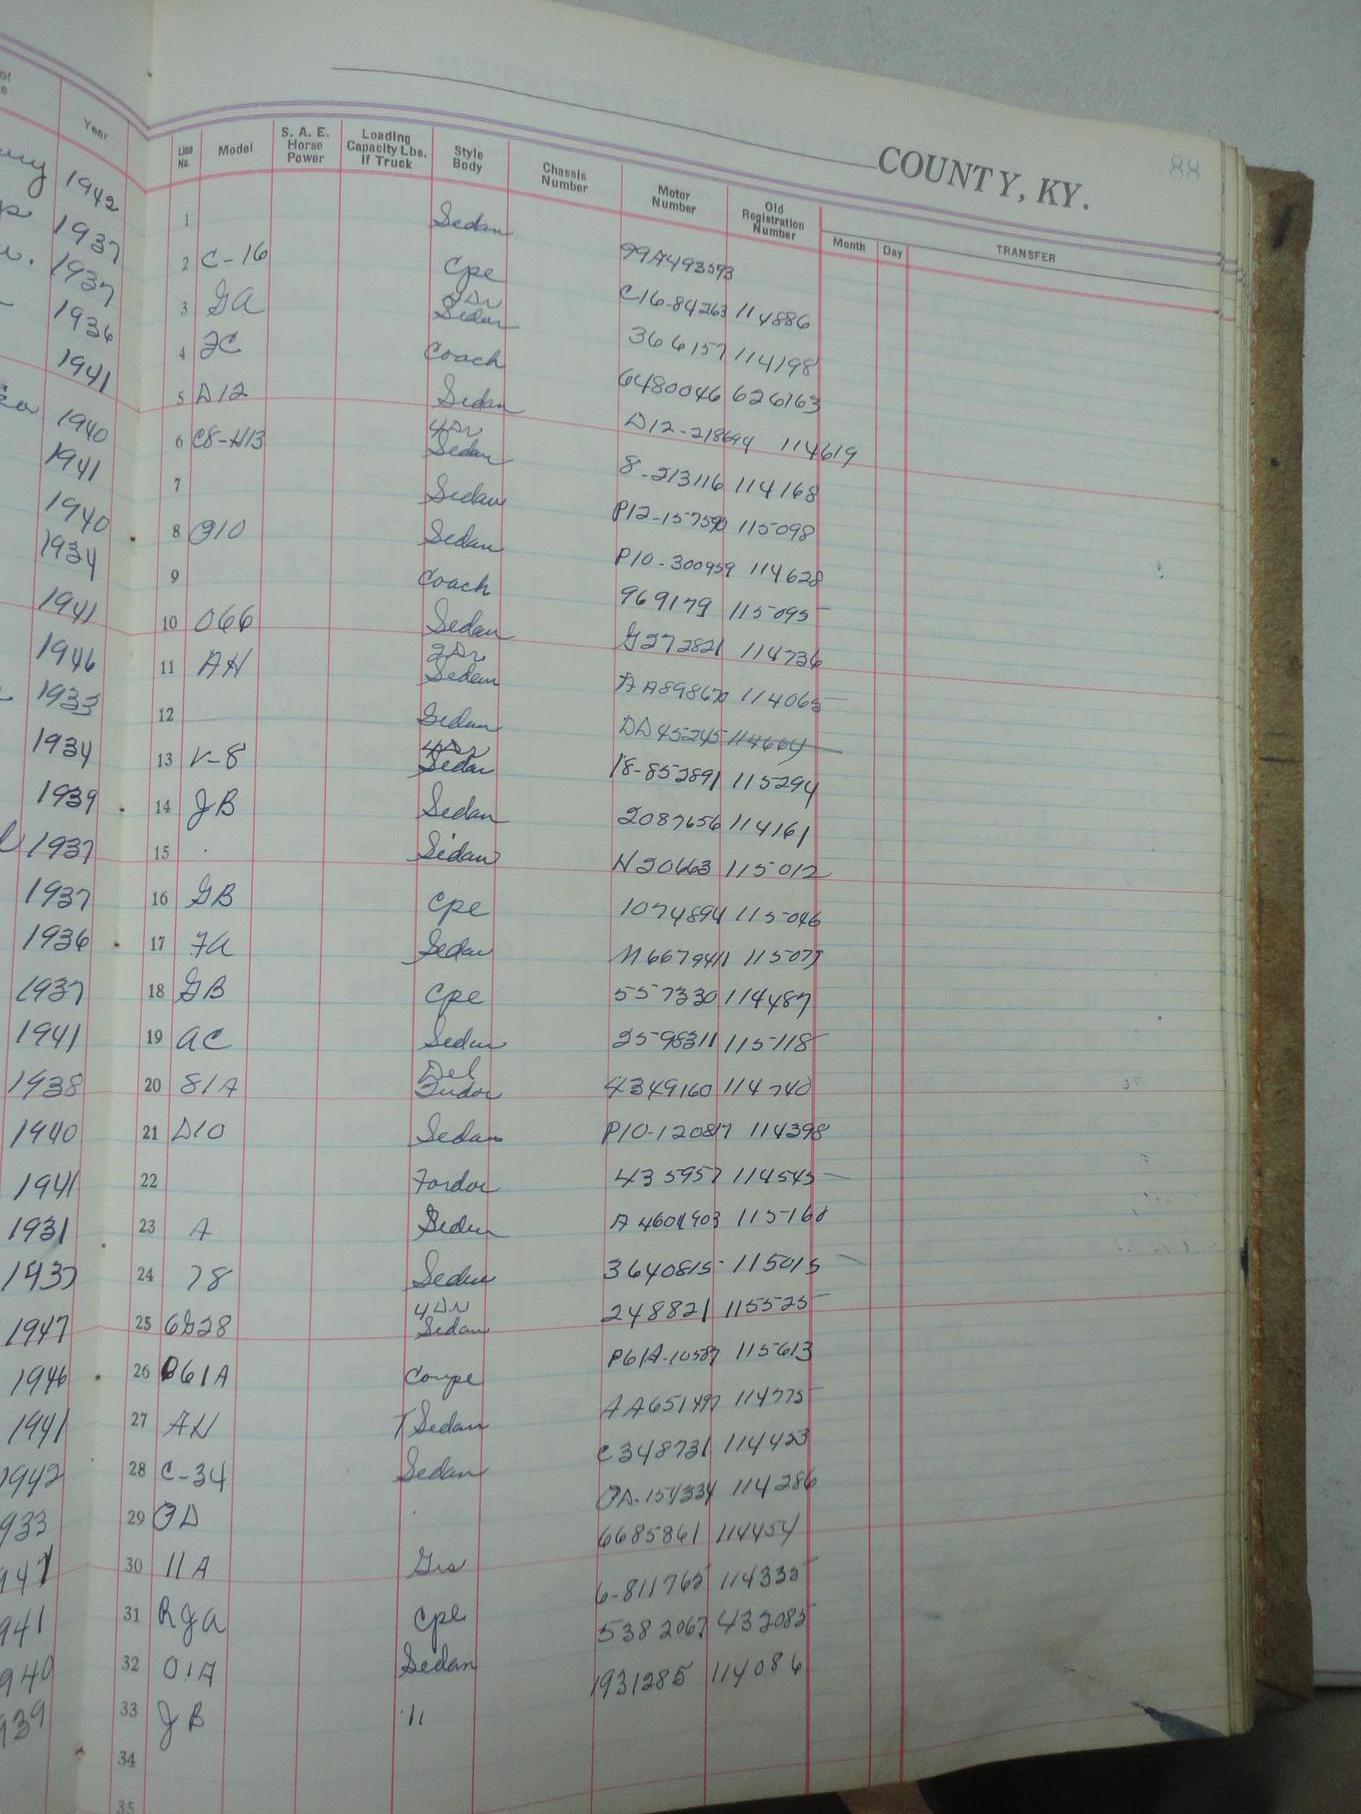 COUNTY, KY.
88
Year
Line No. Model S. A. E. Horse Power Loading Capacity Lbs. If Truck Style Body Chassis Number Motor Number Old Registration Number Month Day TRANSFER
1942 1 Sedan 99A493593
1937 2 C-16 Cpe C16-84263 114886
1937 3 GA Sedan 366157 114198
1936 4 FC Coach 6480046 626163
1941 5 D12 Sedan D12-218694 114619
1940 6 C8-N13 4Dr Sedan 8-213116 114168
1941 7 Sedan P12-157590 115098
1940 8 Sedan P10-300959 114628
1934 9 Coach 969179 115095
1941 10 066 Sedan G272821 114736
1946 11 AH 2Dr Sedan AA89867 114065
1933 12 Sedan DD45245 114664
1934 13 V-8 4Dr Sedan 18-852891 115294
1939 14 JB Sedan 2087656 114161
1937 15 Sedan N20663 115012
1937 16 GB Cpe 1074894 115046
1936 17 FA Sedan M667941 115077
1937 18 GB Cpe 557330 114487
1941 19 AC Sedan 2598311 115118
1938 20 81A Del Tudor 4349160 114740
1940 21 D10 Sedan P10-120817 114398
1941 22 Fordor 435957 114545
1931 23 A Sedan A4601903 115160
1937 24 78 Sedan 3640815 115015
1947 25 6G28 4Dr Sedan 248821 115525
1946 26 B61A Coupe P61A-10587 115613
1941 27 AH T Sedan AA651497 114775
1942 28 C-34 Sedan C348731 114423
933 29 154334 114286
947 30 11A 6685861 114454
941 31 RJA Cpe 6-811765 114335
940 32 01A Sedan 5382067 432085
939 33 JB 11 1931285 114086
34
35